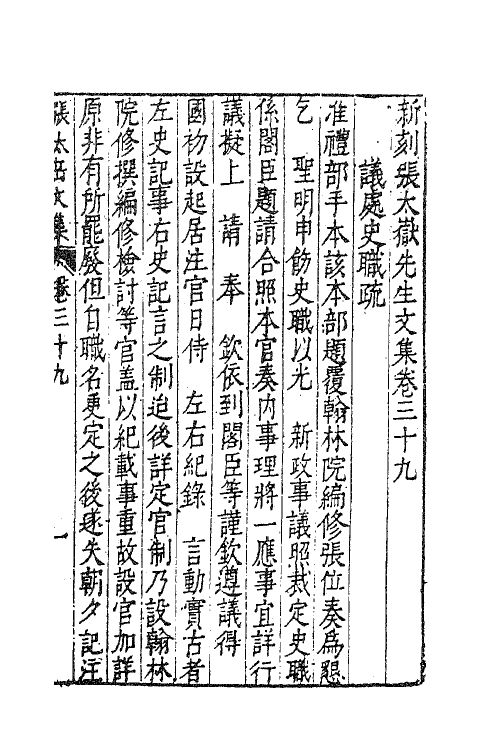 新刻張太嶽先生文集卷三十九
議處史職疏
准禮部手本該本部題覆翰林院編修張位奏爲懇
乞　聖明申飭史職以光　新政事議照裁定史職
係閣臣題請合照本官奏内事理將一應事宜詳行
議擬上　請　奉　欽依到閣臣等謹欽遵議得
國初設起居注官日侍　左右紀錄　言動實古者
左史記事右史記言之制迨後詳定官制乃設翰林
院修撰編修檢討等官盖以紀載事重故設官加詳
原非有所罷廢但自職名更定之後遂失朝夕記注
張太岳文集　卷三十九　一